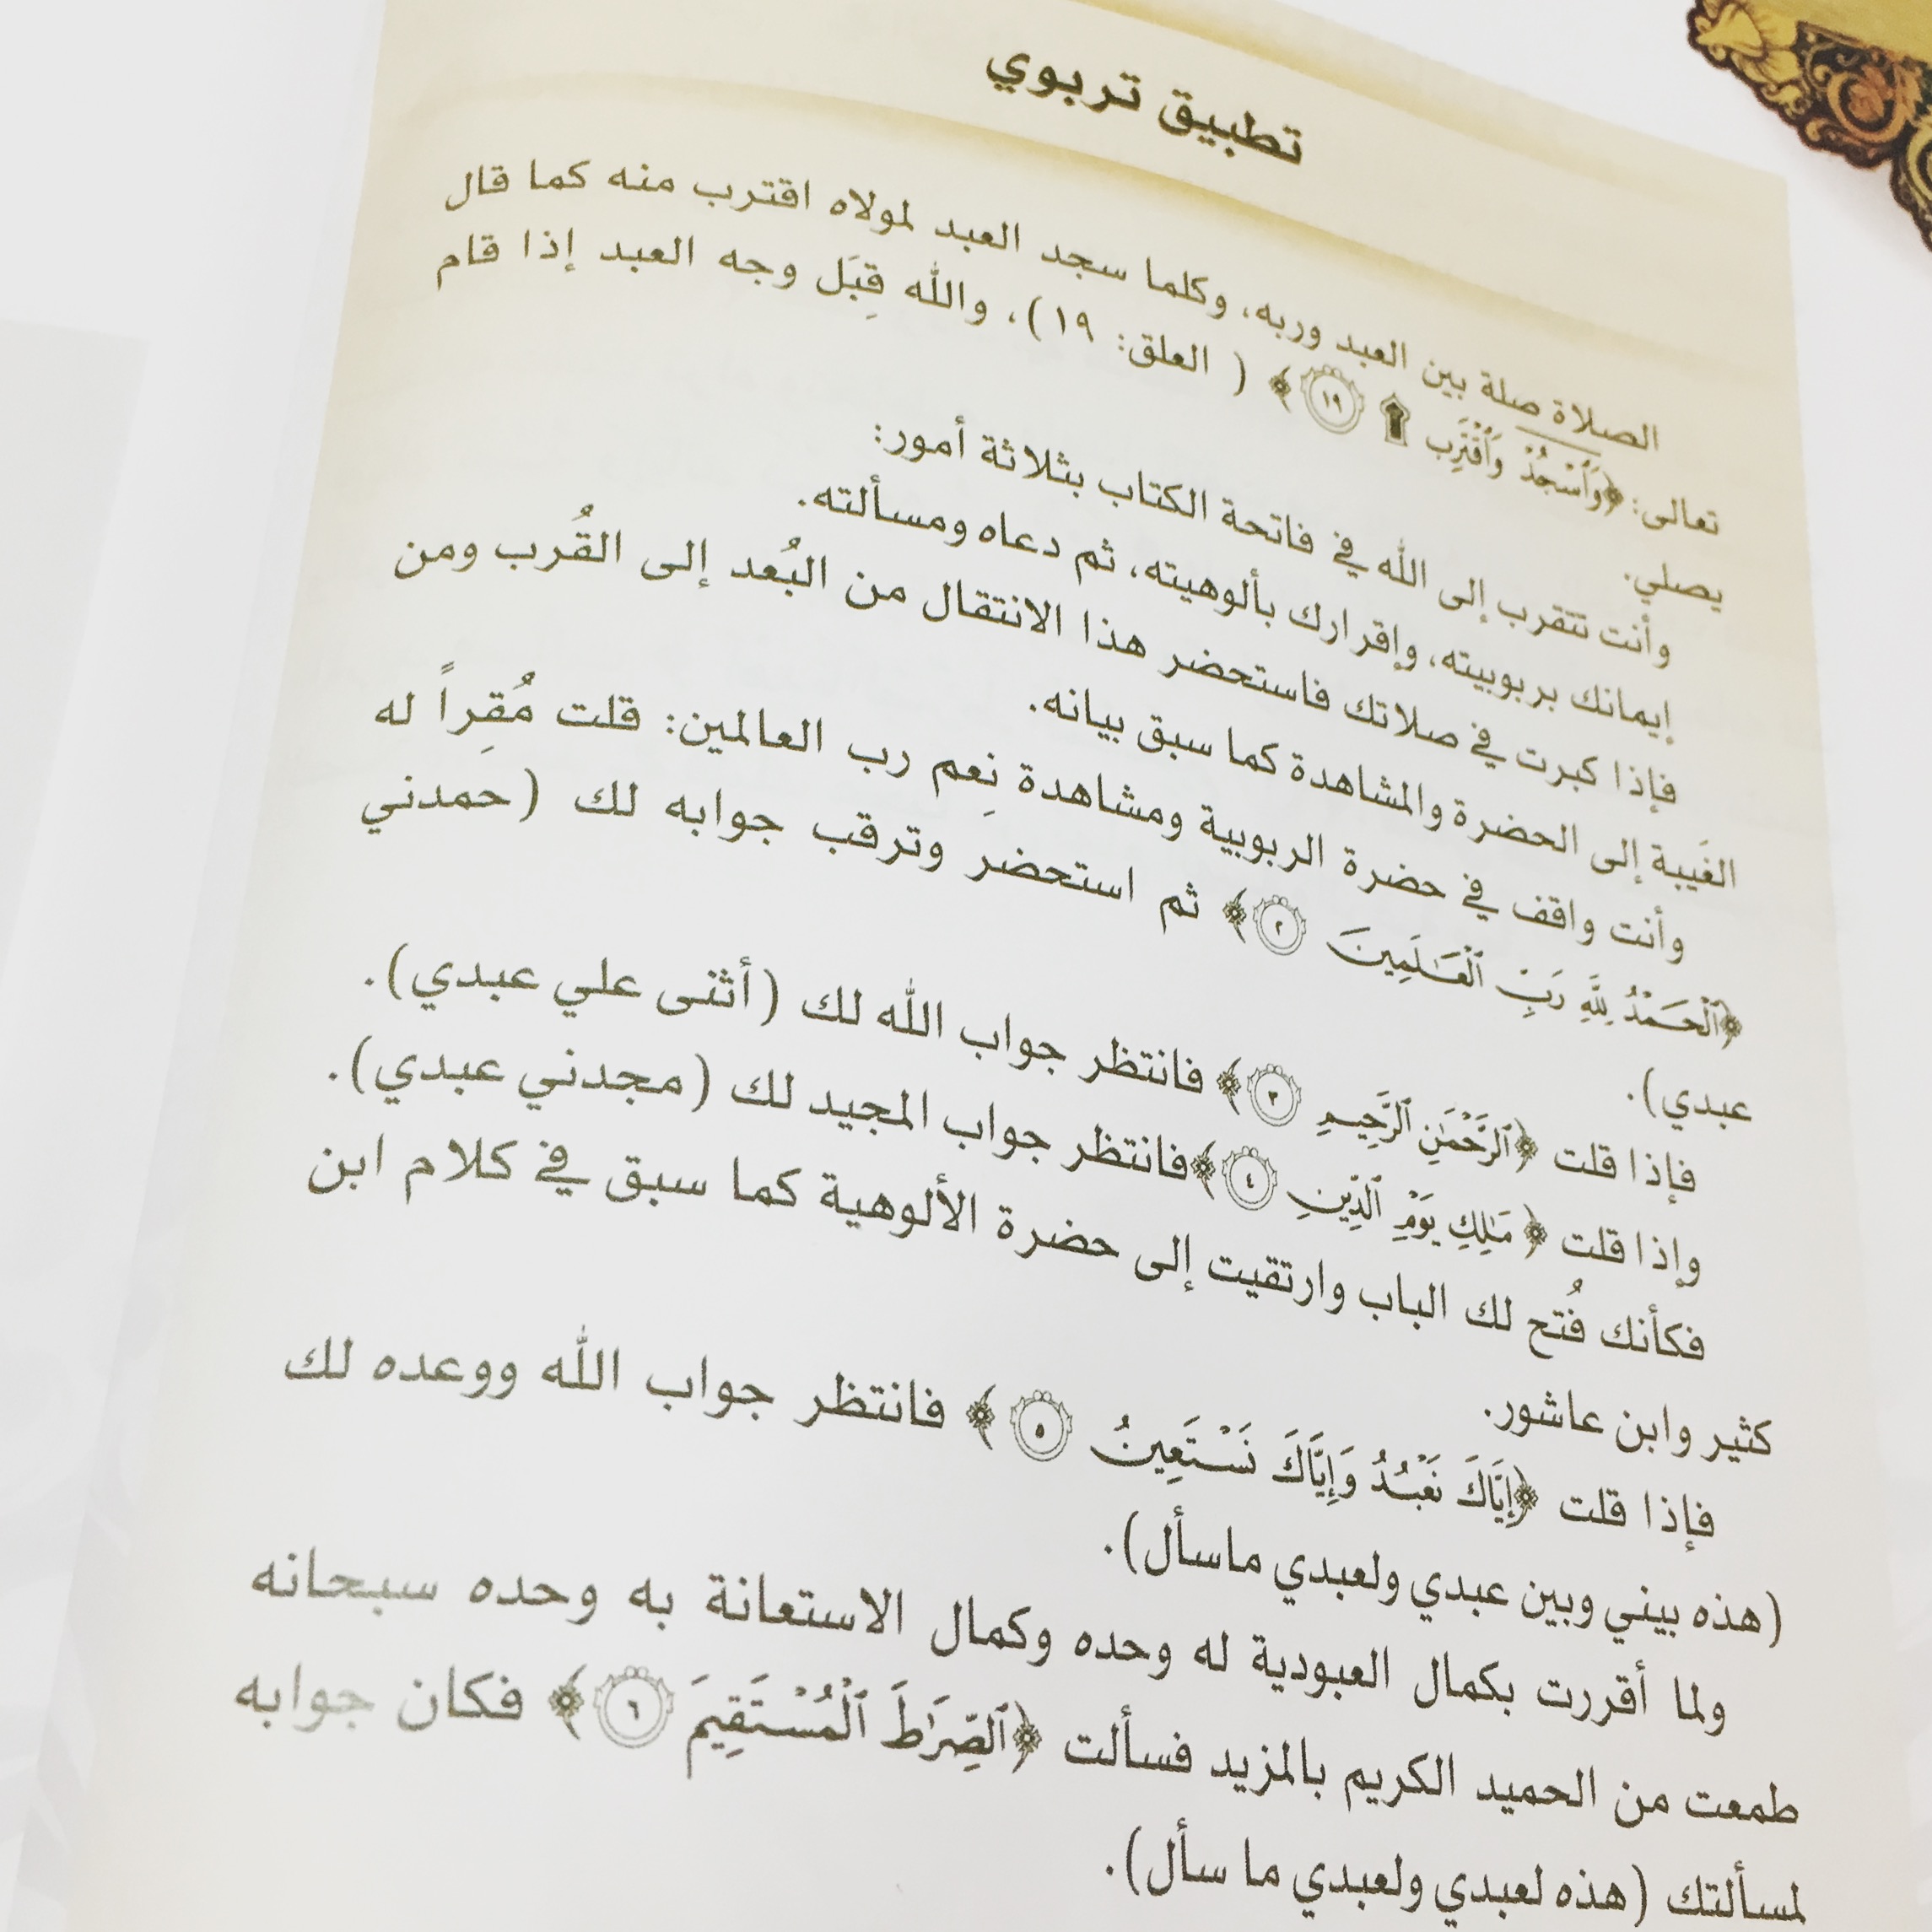 تطبيق تربوي
الصلاة صلة بين العبد وربه، وكلما سجد العبد لمولاه اقترب منه كما قال
تعالى: ﴿وَٱسْجُدْ وَٱقْتَرِب ۩ ١٩﴾ ( العلق: ١٩)، والله قِبَل وجه العبد إذا قام
يصلي.
وأنت تتقرب إلى الله في فاتحة الكتاب بثلاثة أمور:
إيمانك بربوبيته، وإقرارك بألوهيته، ثم دعاه ومسألته.
فإذا كبرت في صلاتك فاستحضر هذا الانتقال من البُعد إلى القُرب ومن
الغَيبة إلى الحضرة والمشاهدة كما سبق بيانه.
وأنت واقف في حضرة الربوبية ومشاهدة نِعم رب العالمين: قلت مُقِراً له
﴿ٱلْحَمْدُ لِلَّهِ رَبِّ ٱلْعَـٰلَمِينَ ٢﴾ ثم استحضر وترقب جوابه لك (حمدني
عبدي).
فإذا قلت ﴿ٱلرَّحْمَـٰنِ ٱلرَّحِيمِ ٣﴾ فانتظر جواب الله لك (أثنى علي عبدي).
وإذا قلت ﴿مَـٰلِكِ يَوْمِ ٱلدِّينِ ٤﴾فانتظر جواب المجيد لك (مجدني عبدي).
فكأنك فُتح لك الباب وارتقيت إلى حضرة الألوهية كما سبق في كلام ابن
كثير وابن عاشور.
فإذا قلت ﴿إِيَّاكَ نَعْبُدُ وَإِيَّاكَ نَسْتَعِينُ ٥﴾ فانتظر جواب الله ووعده لك
(هذه بيني وبين عبدي ولعبدي ماسأل).
ولما أقررت بكمال العبودية له وحده وكمال الاستعانة به وحده سبحانه
طمعت من الحميد الكريم بالمزيد فسألت ﴿ٱلصِّرَٰطَ ٱلْمُسْتَقِيمَ ٦﴾ فكان جوابه
لمسألتك (هذه لعبدي ولعبدي ما سأل).